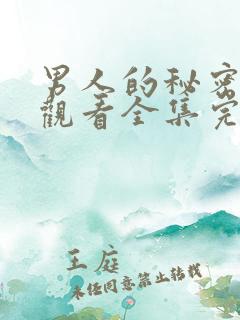 男人的秘密
觀看全集完
王庭
未经同意禁止转载